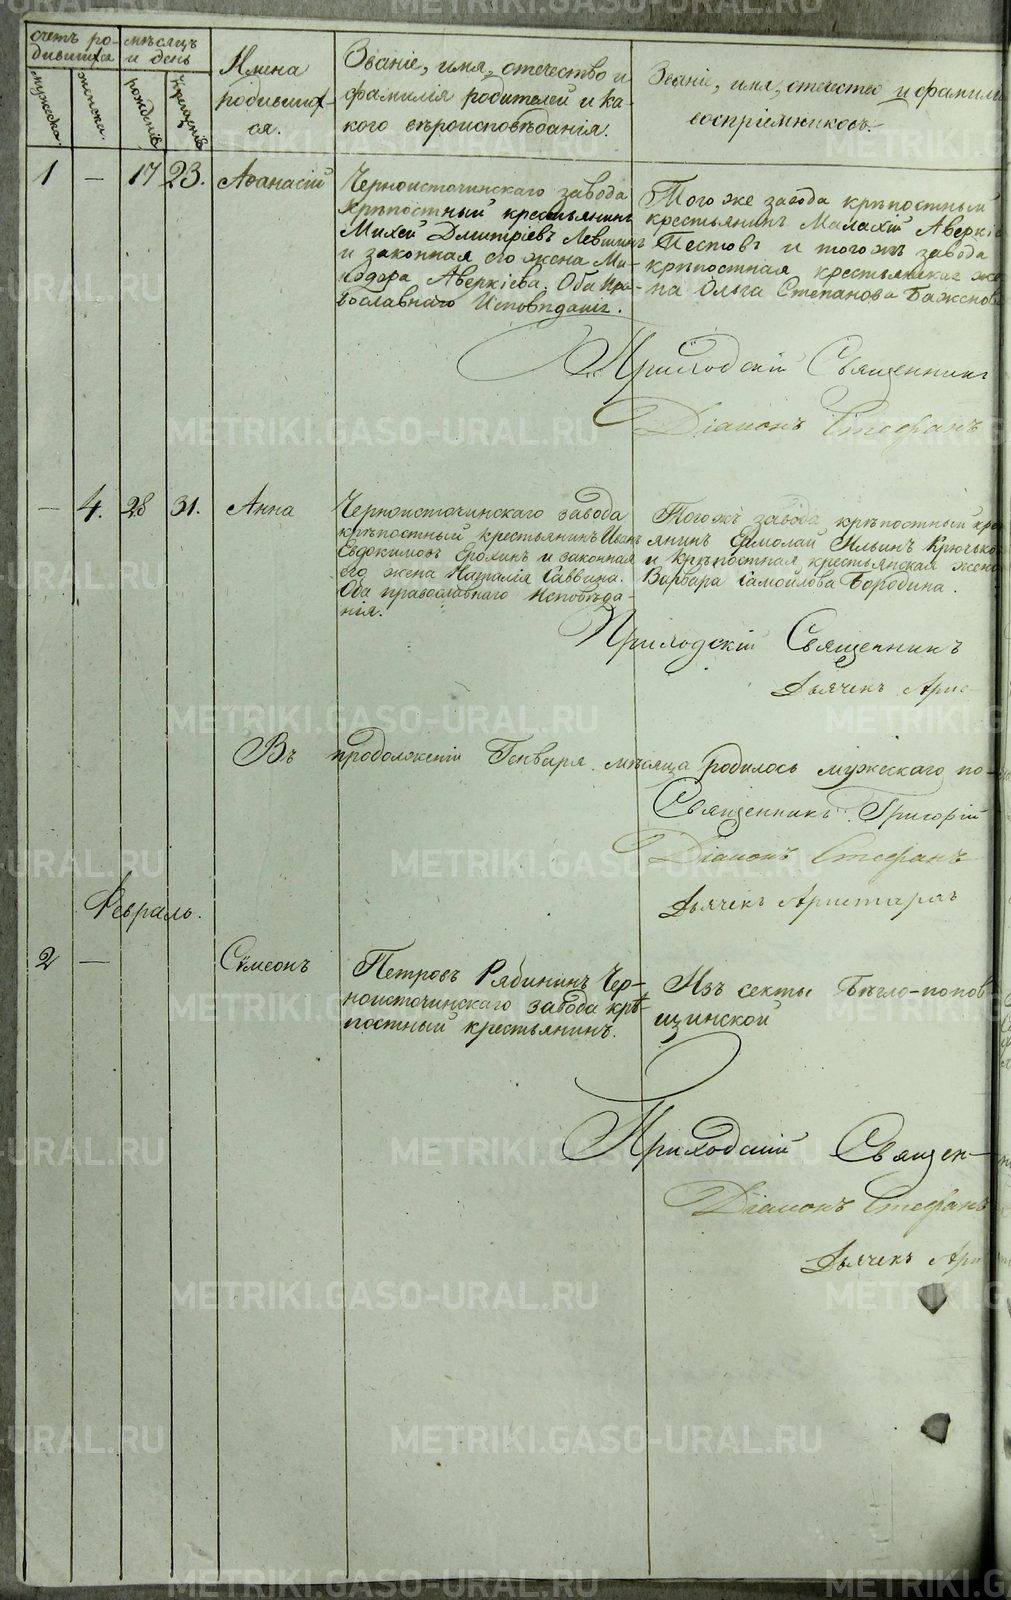 счетъ ро-
дившихся
мѣсяцъ
и день
мужеска
женска
рожденія
крещенія
Имена
родивших-
ся.
Званіе, имя, отечество и
фамилія родителей и ка-
кого вѣроисповѣданія.
Званіе, имя, отечество и фамилі
воспріемниковъ.
1 — 17 23. Аѳанасій
Черноисточинскаго завода
крѣпостный крестьянинъ
Михей Дмитріевъ Левшинъ
и законная его жена Ми-
Аверкіева. Оба пра-
вославнаго Исповѣданія.
Того же завода крѣпостный
крестьянинъ Малахій Аверкі
Пестовъ и тогожъ завода
крѣпостная крестьянская же-
на Ольга Степанова Баженов
Приходскій Священникъ
Діаконъ Стефанъ
— 4. 28 31. Анна
Черноисточинскаго завода
крѣпостный крестьянинъ Иванъ
Евдокимовъ Ерохинъ и законная
его жена Наталія Саввина.
Оба православнаго Исповѣда-
нія.
Тогожъ завода крѣпостный кре
янинъ Ермолай Ильинъ Крючько
и крѣпостная крестьянская жена
Варвара Самойлова Бородина.
Приходскій Священникъ
Дьячекъ Арис-
Въ продолженіи Генваря мѣсяца родилось мужескаго по-
Священникъ Григорій
Діаконъ Стефанъ
Дьячекъ Аристархъ
Февраль.
2 — Сѵмеонъ
Петровъ Рябининъ Чер-
ноисточинскаго завода крѣ-
постный крестьянинъ.
Изъ секты Бѣгло-попов
щинской
Приходскій Священ-
Діаконъ Стефанъ
Дьячекъ Ари
METRIKI.GASO-URAL.RU